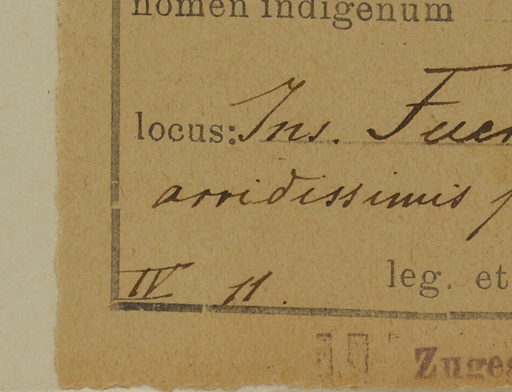 nomen indigenum
locus: Ins. Fuer
arridissimis
IV 11.
leg. et
Zuges